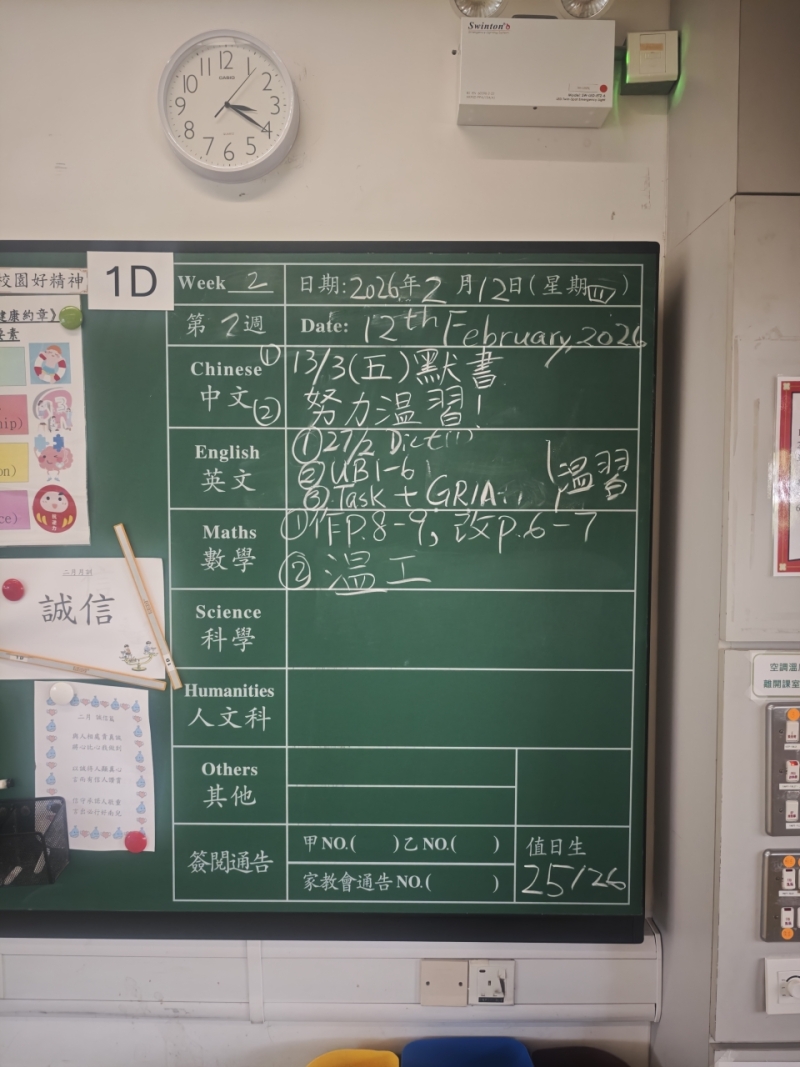 12
11
1
10
2
9
3
8
4
7
5
6
CASIO
Swinton
校園好精神
1D
Week 2
日期:2026年2月12日(星期四)
第 2 週
Date: 12th February, 2026
Chinese
中文
① 13/3(五)默書
② 努力温習!
English
英文
① 27/2 Dict(1)
② UB1-6
③ Task + GRIA
温習
Maths
數學
① 作P.8-9; 改p.6-7
② 温工
Science
科學
Humanities
人文科
Others
其他
簽閱通告
甲NO.( )乙NO.( )
家教會通告NO.( )
值日生
25/26
健康約章》
要素
誠信
二月 誠信篇
空調溫
離開課室